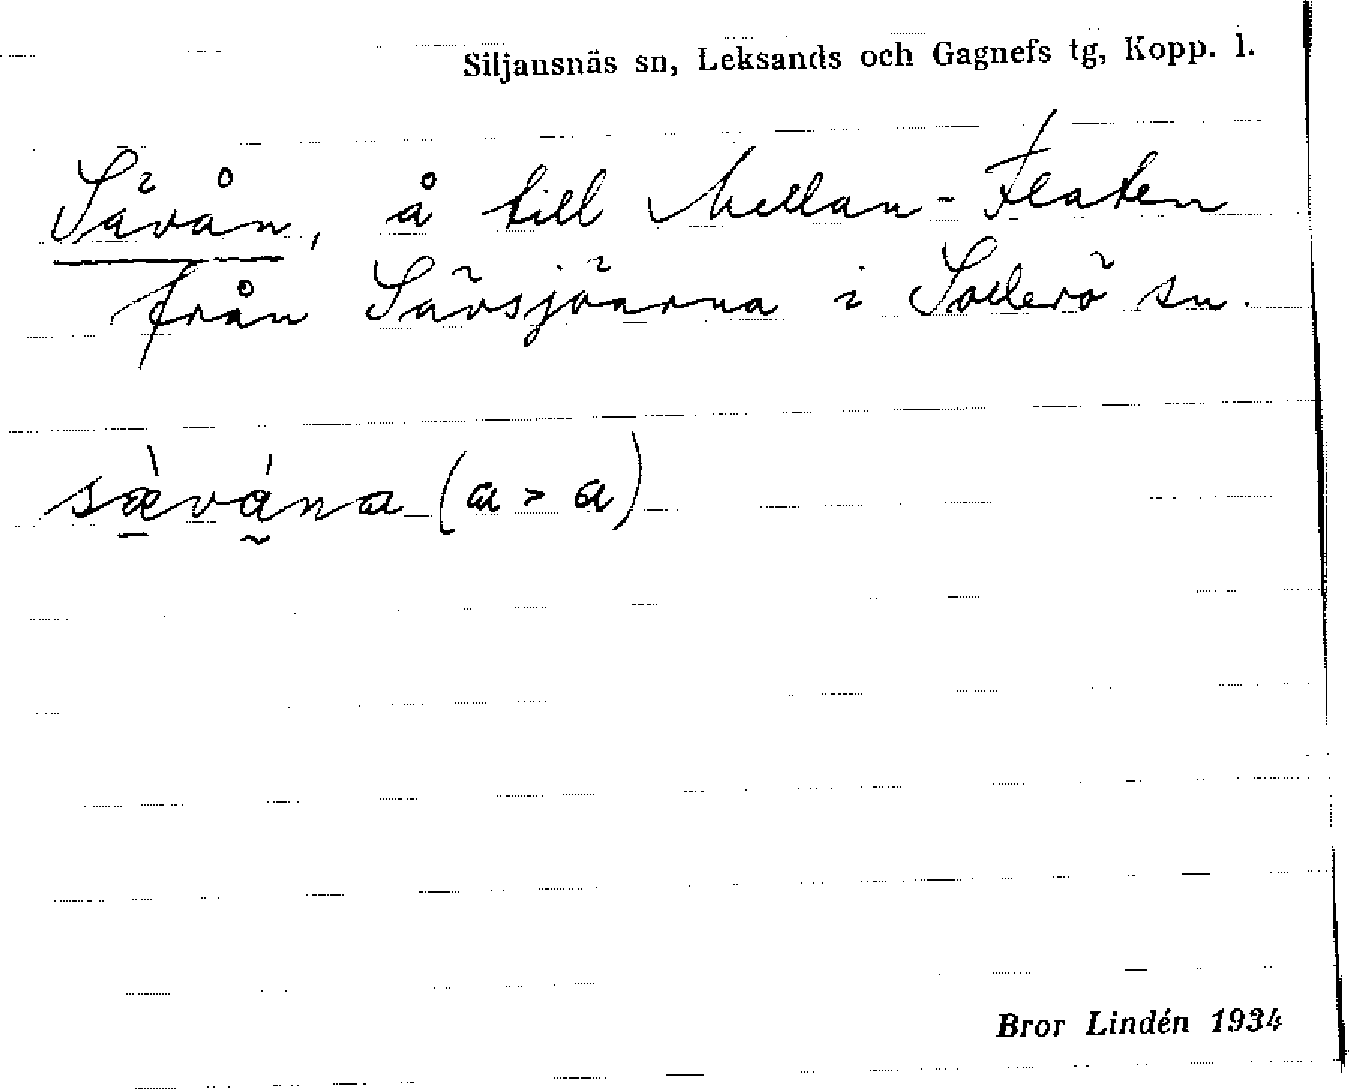 Siljansnäs sn, Leksands och Gagnefs tg, Kopp. l.
Sävån, å till Mellan-Flaten
från Sävsjöarna i Sollerö sn.
sæ̀vána (a > a)
Bror Lindén 1934